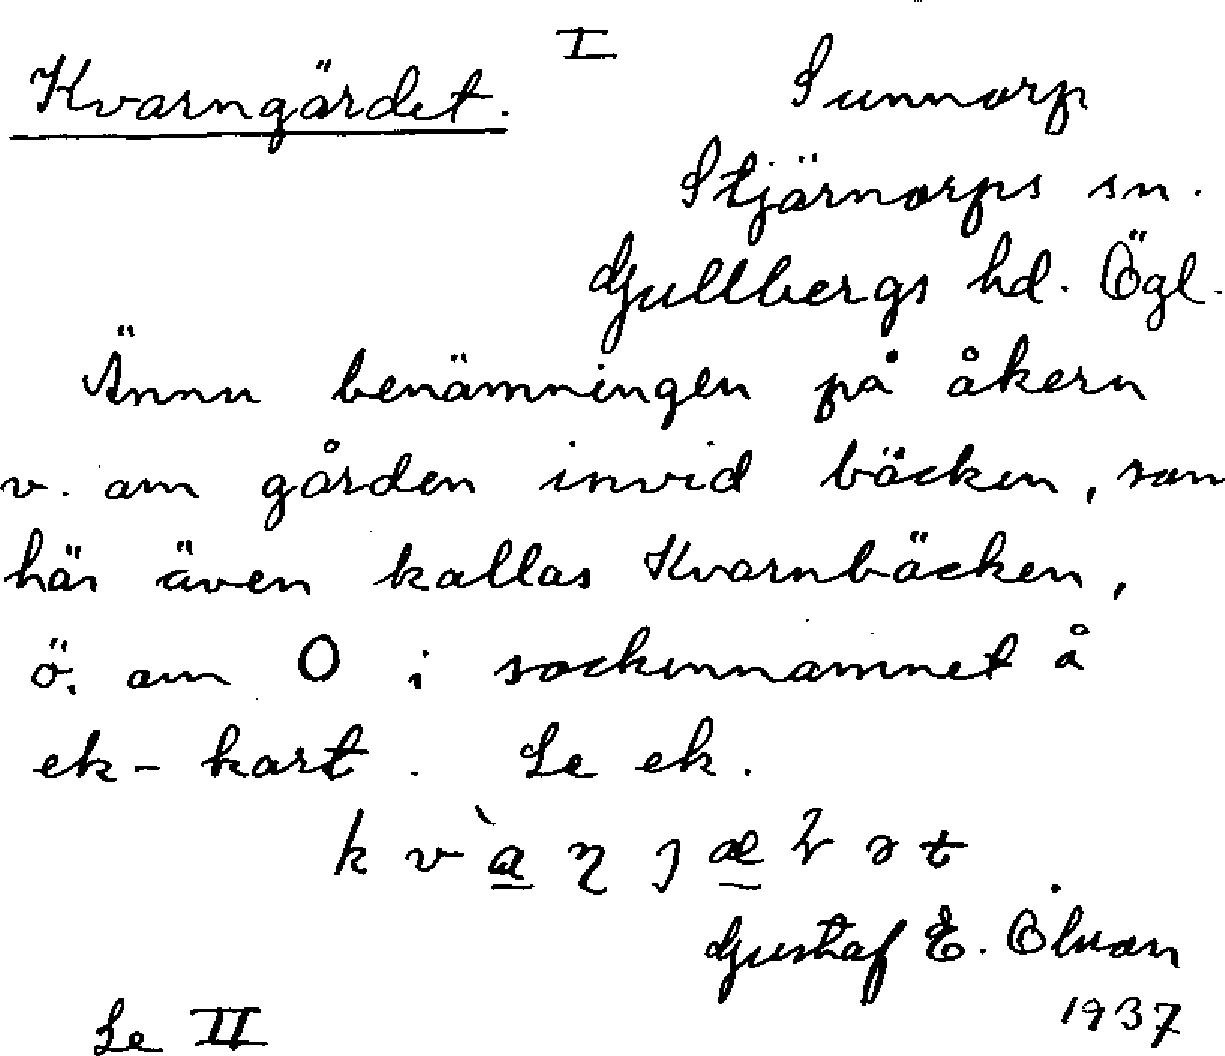 I
Kvarngärdet.
Sunnorp
Stjärnorps sn.
Gullbergs hd. Ögl.
Ännu benämningen på åkern
v. om gården invid bäcken, som
här även kallas Kvarnbäcken,
ö. om O i sockennamnet å
ek-kart. Se ek.
Gustaf E.
1937
Se II